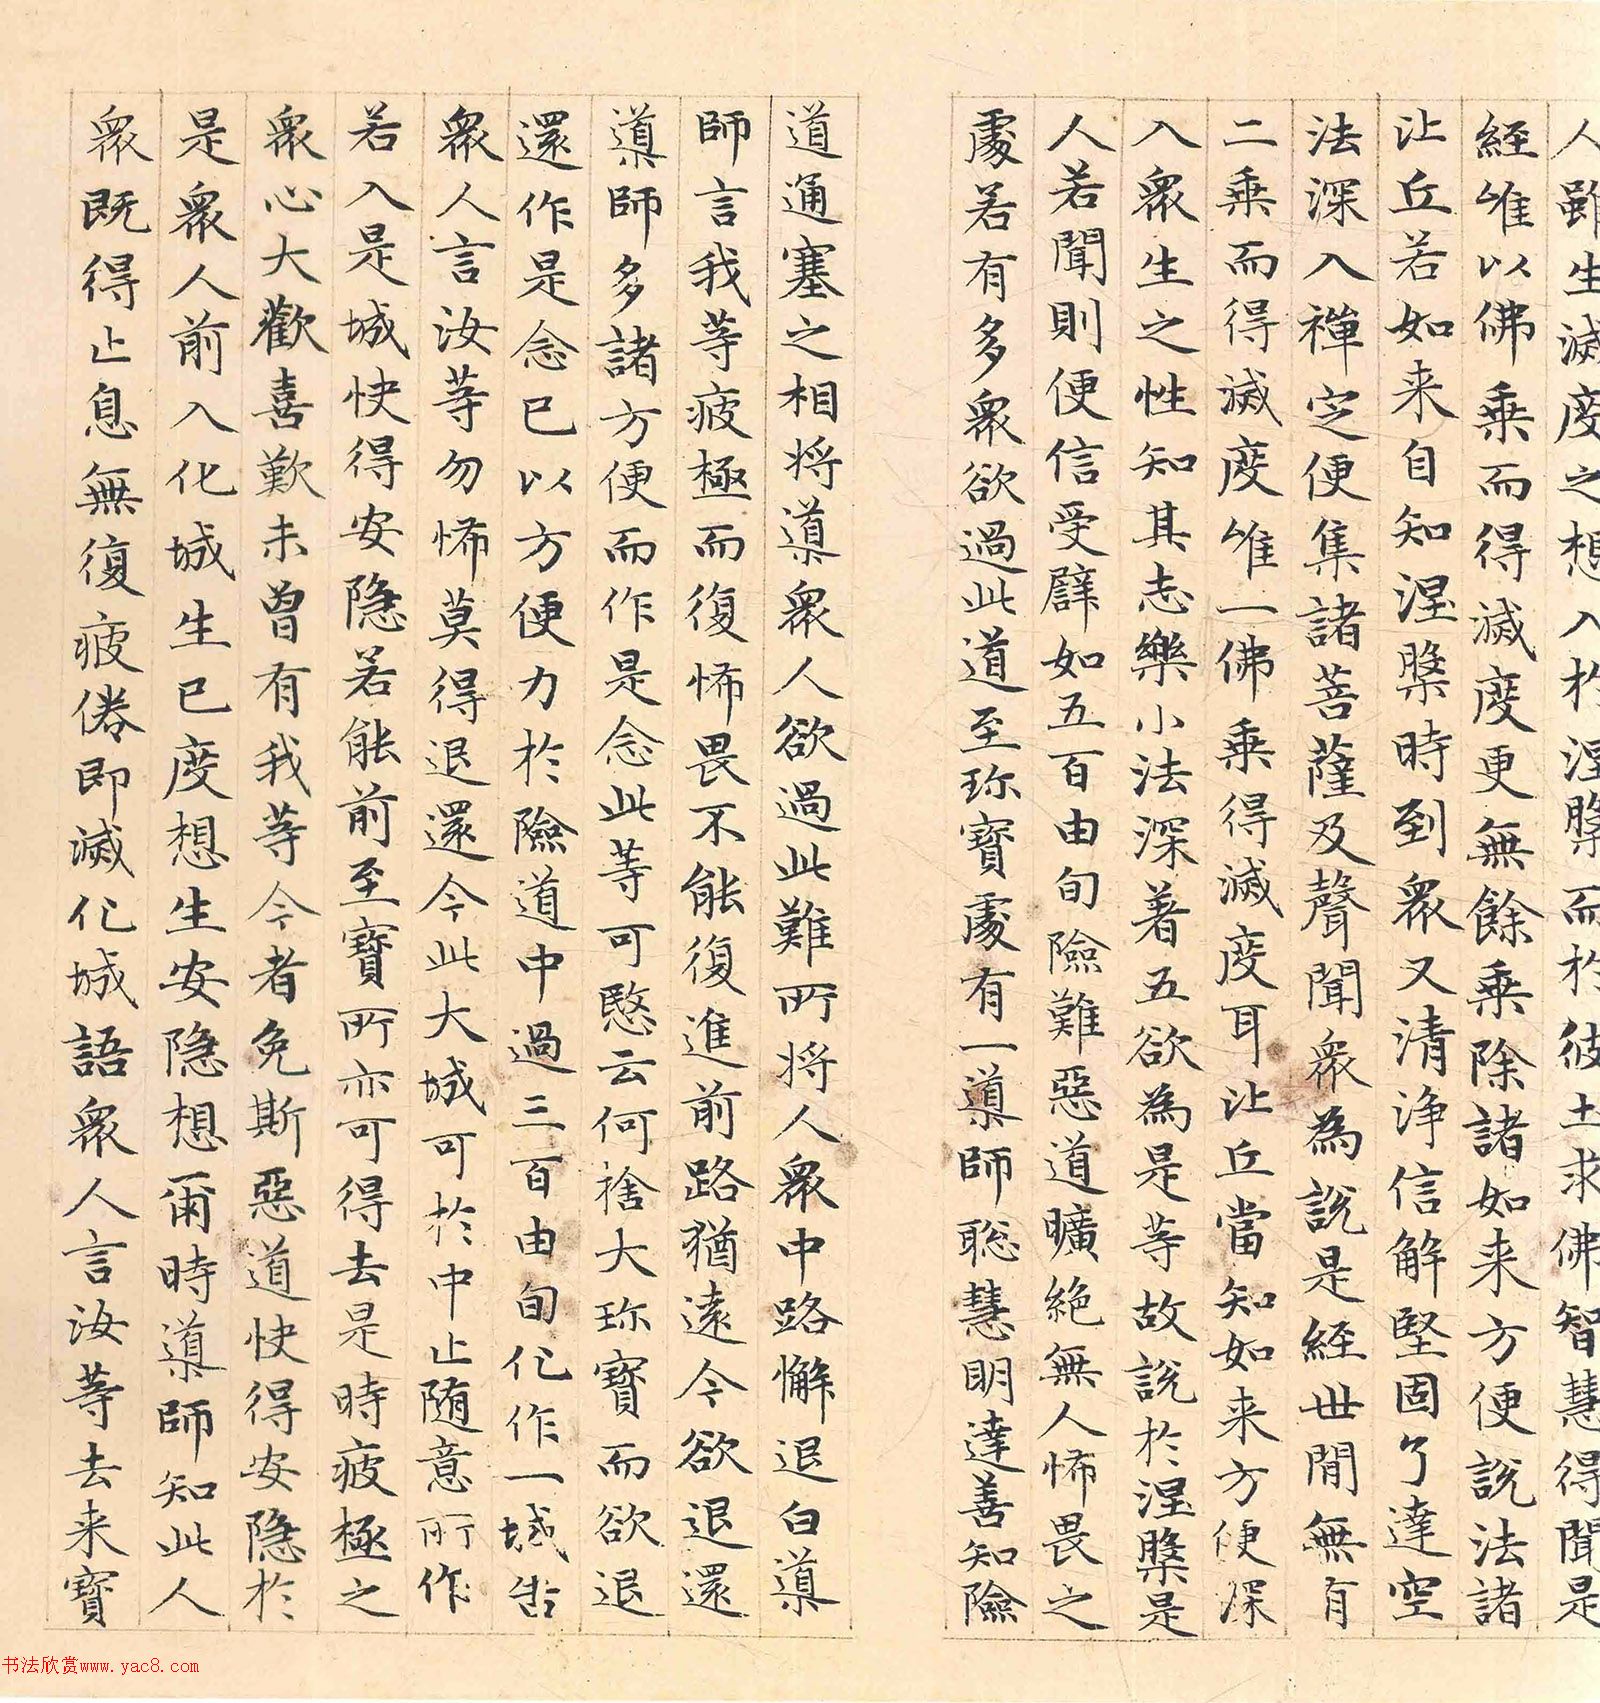 人雖生滅度之想入於涅槃而於彼土求佛智慧得聞是
經唯以佛乘而得滅度更無餘乘除諸如来方便說法諸
比丘若如来自知涅槃時到衆又清淨信解堅固了達空
法深入禪定便集諸菩薩及聲聞衆為說是經世間無有
二乘而得滅度唯一佛乘得滅度耳比丘當知如来方便深
入衆生之性知其志樂小法深著五欲為是等故說於涅槃是
人若聞則便信受譬如五百由旬險難惡道曠絕無人怖畏之
處若有多衆欲過此道至珎寶處有一導師聡慧明達善知險
道通塞之相将導衆人欲過此難所将人衆中路懈退白導
師言我等疲極而復怖畏不能復進前路猶遠今欲退還
導師多諸方便而作是念此等可愍云何捨大珎寶而欲退
還作是念已以方便力於險道中過三百由旬化作一城告
衆人言汝等勿怖莫得退還今此大城可於中止随意所作
若入是城快得安隐若能前至寶所亦可得去是時疲極之
衆心大歡喜歎未曾有我等今者免斯惡道快得安隐於
是衆人前入化城生已度想生安隐想爾時導師知此人
衆既得止息無復疲倦即滅化城語衆人言汝等去来寶
书法欣赏www.yac8.com